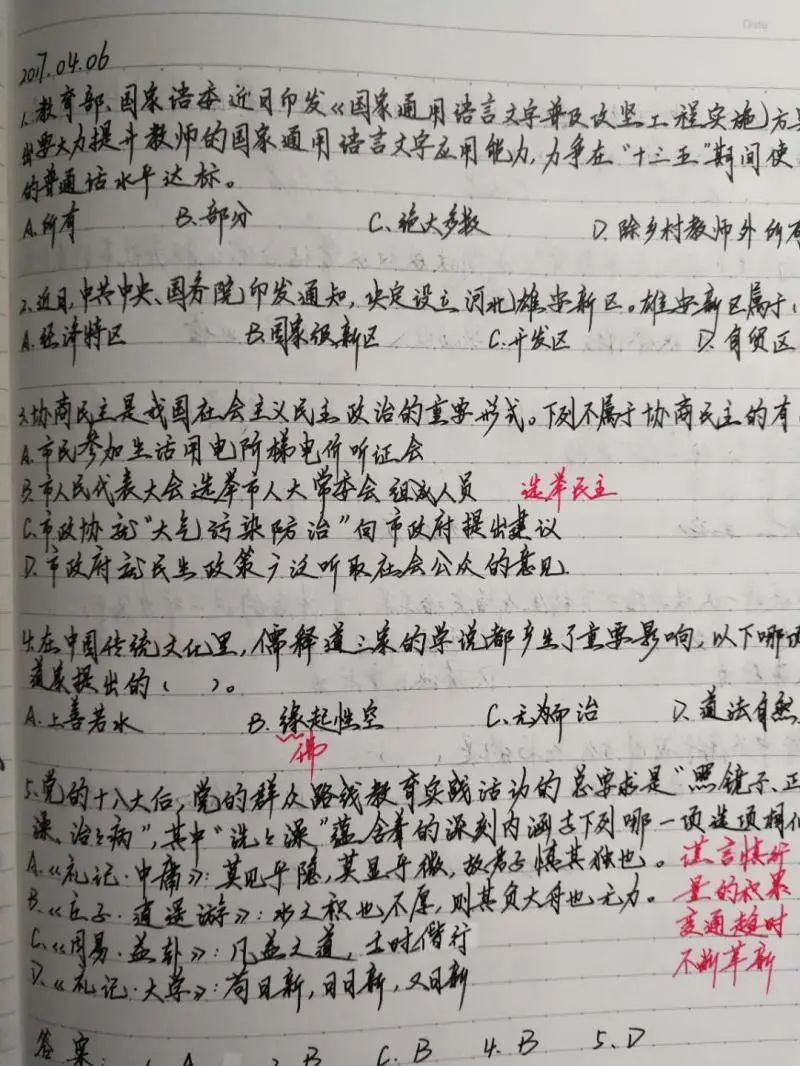 Date
2017.04.06
1.教育部、国家语委近日印发《国家通用语言文字普及攻坚工程实施》方
出要大力提升教师的国家通用语言文字应用能力,力争在"十三五"期间使
的普通话水平达标。
A.所有 B.部分 C.绝大多数 D.除乡村教师外所有
2.近日,中共中央、国务院印发通知,决定设立河北雄安新区。雄安新区属于(
A.经济特区 B.国家级新区 C.开发区 D.自贸区
3.协商民主是我国社会主义民主政治的重要形式。下列不属于协商民主的有
A.市民参加生活用电阶梯电价听证会
B.市人民代表大会选举市人大常委会组成人员 选举民主
C.市政协就"大气污染防治"向市政府提出建议
D.市政府就民生政策广泛听取社会公众的意见
4.在中国传统文化里,儒释道三家的学说都产生了重要影响,以下哪
道家提出的( )。
A.上善若水 B.缘起性空 C.无为而治 D.道法自然
佛
5.党的十八大后,党的群众路线教育实践活动的总要求是"照镜子、正
澡、治治病",其中"洗洗澡"蕴含着的深刻内涵与下列哪一项选项相似
A.《礼记·中庸》:莫见乎隐,莫显乎微,故君子慎其独也。 谨言慎行
B.《庄子·逍遥游》:水之积也不厚,则其负大舟也无力。 量的积累
C.《周易·益卦》:凡益之道,与时偕行 变通趋时
D.《礼记·大学》:苟日新,日日新,又日新 不断革新
答案: 1.A 2.B C.B 4.B 5.D